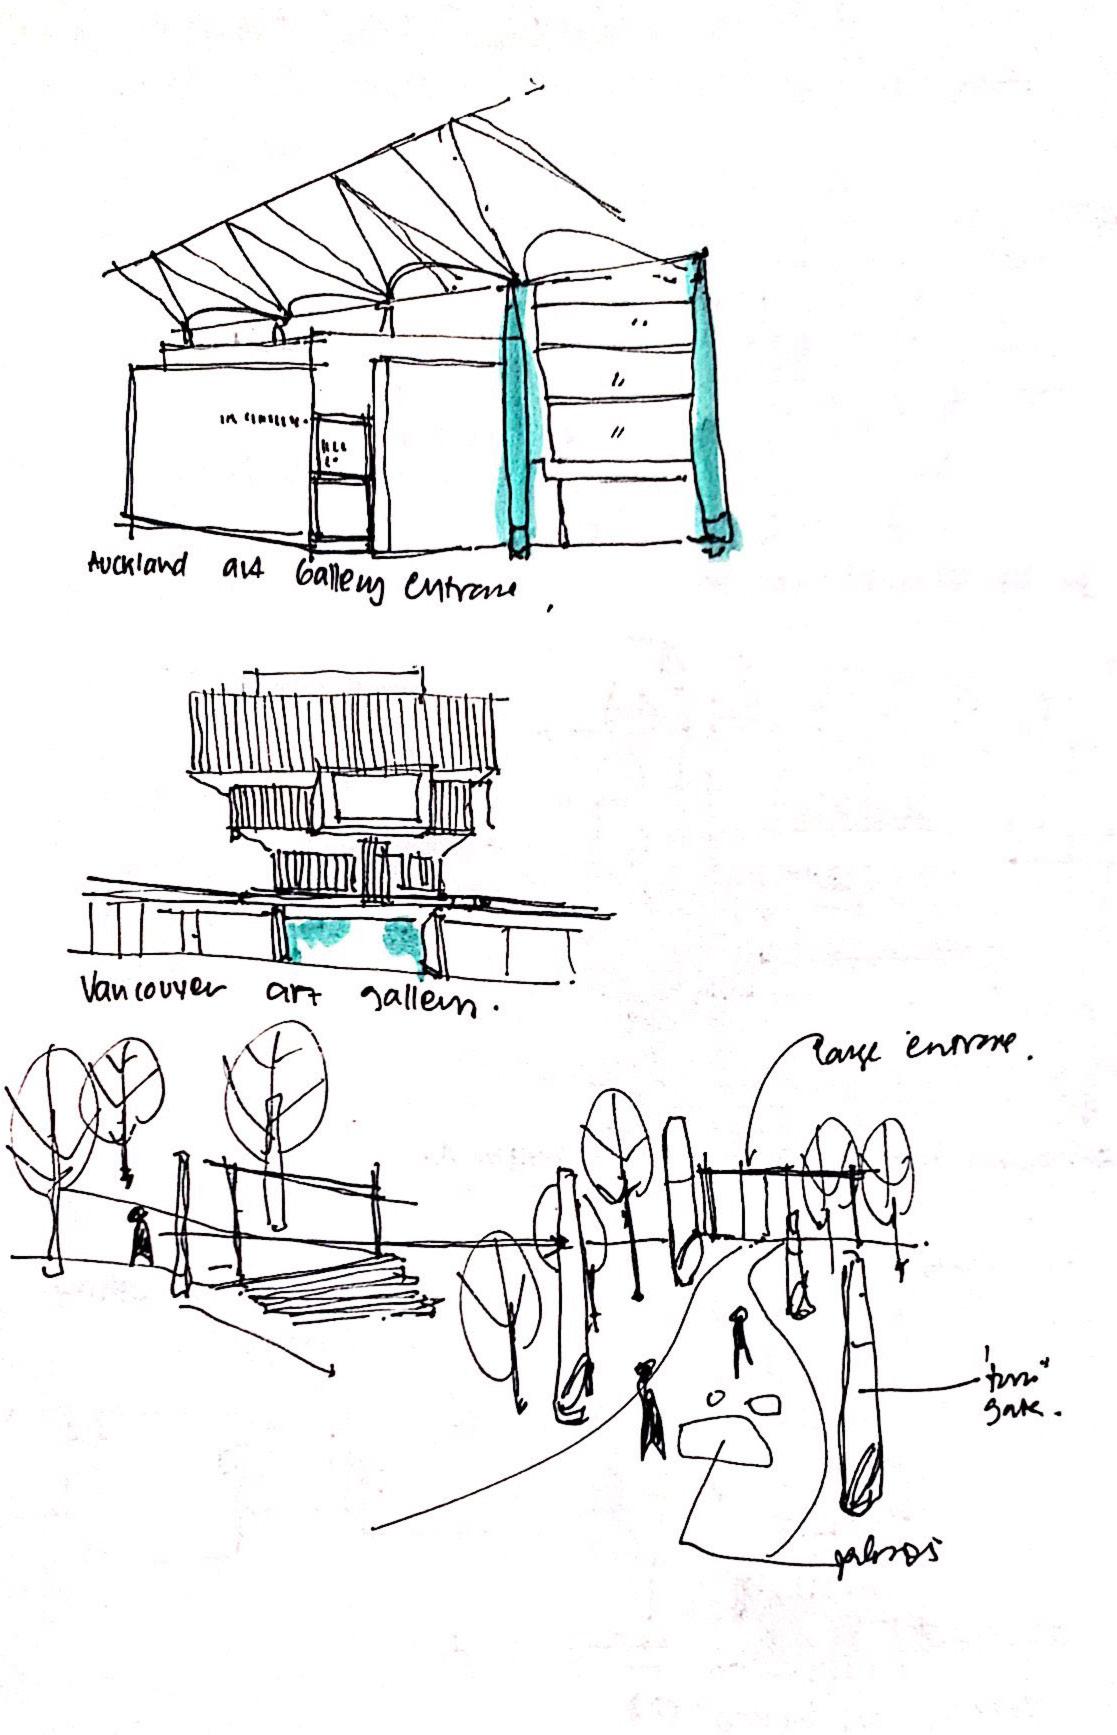 Auckland art Gallery entrance
Vancouver art gallery.
large entrance.
gate.